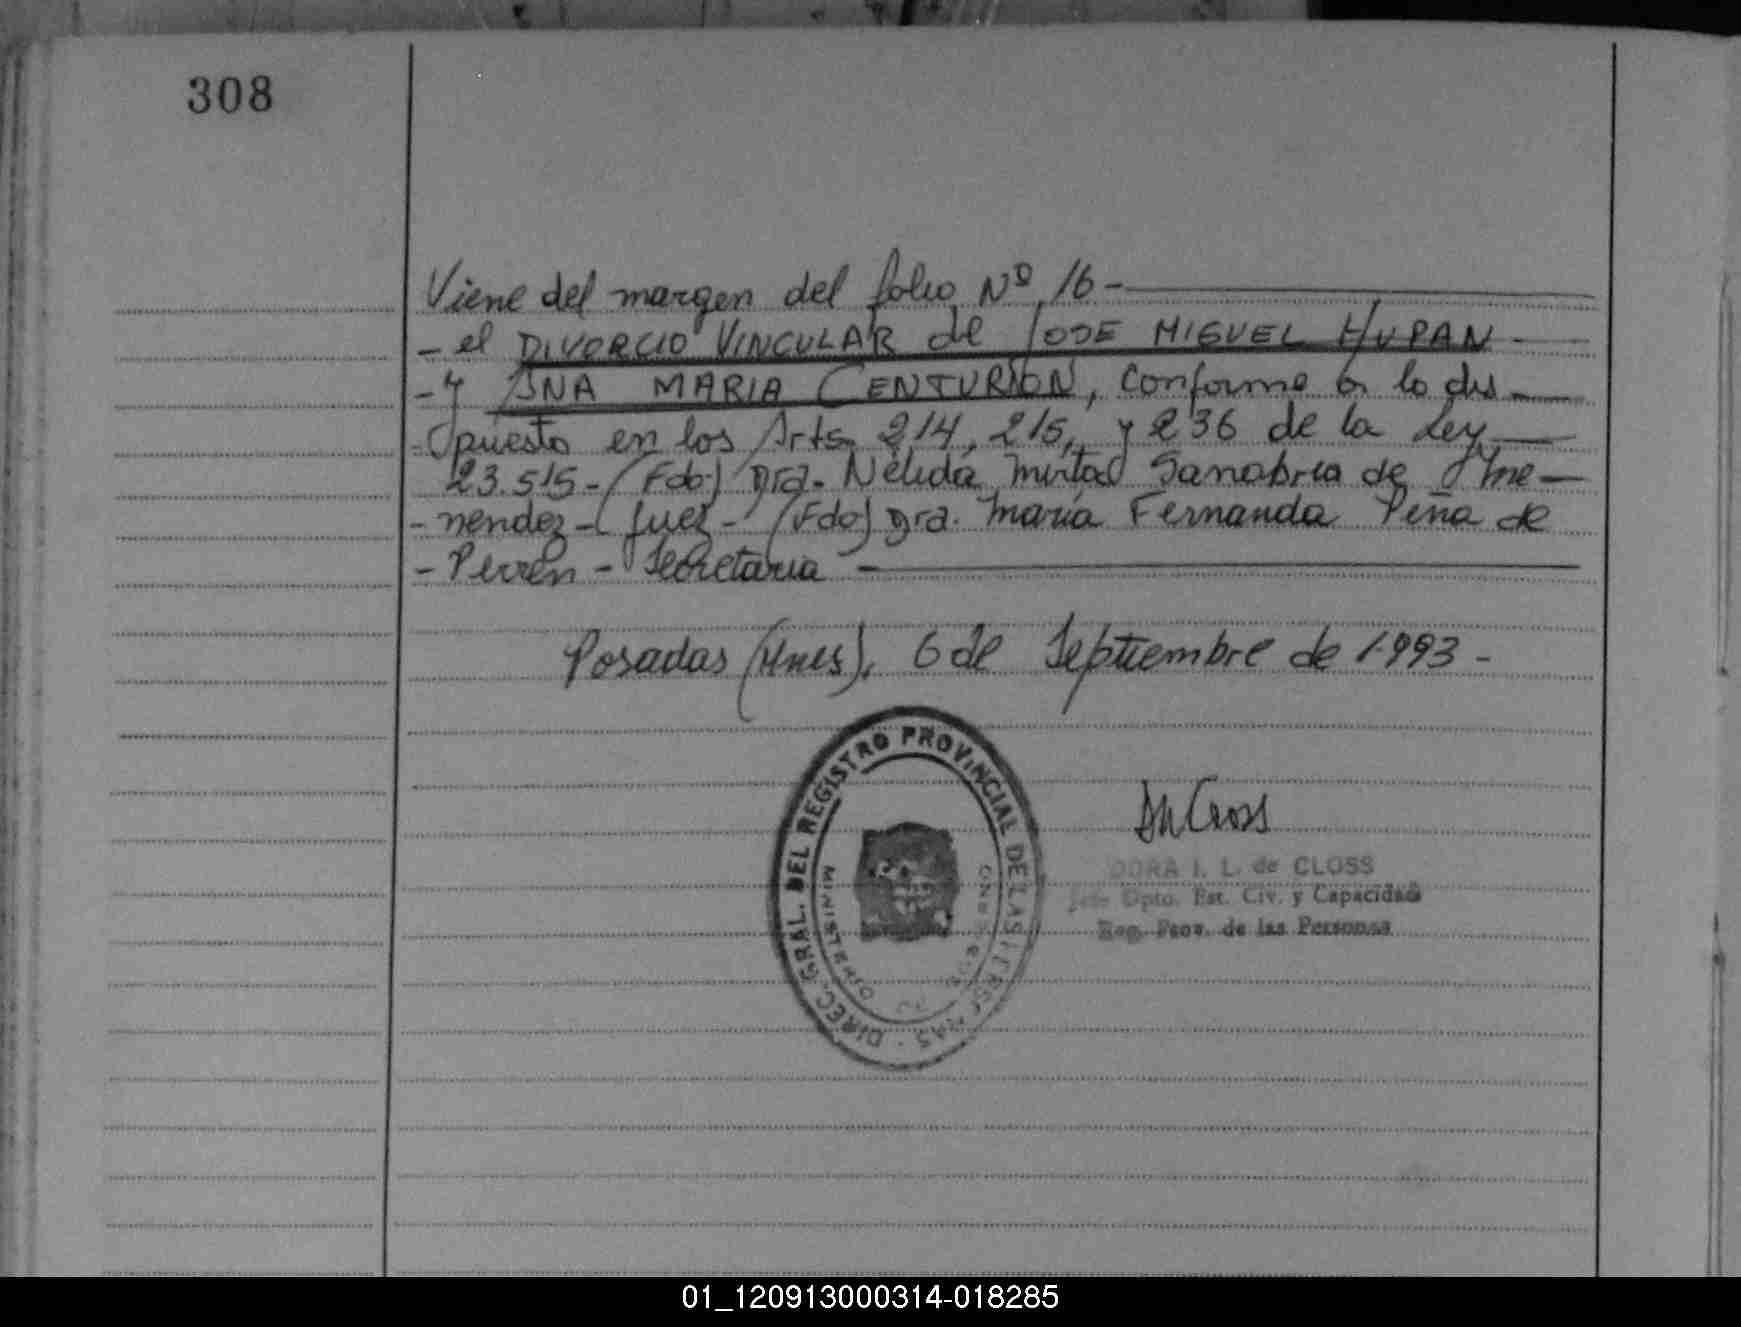 308
Viene del margen del folio Nº 16 -
- el DIVORCIO VINCULAR de JOSE MIGUEL HUPAN -
- y ANA MARIA CENTURION, conforme a lo dis
- puesto en los Arts. 214, 215, y 236 de la Ley
23.515 - (Fdo) Dra. Nélida Mirta Sanabria de Jime
- nendez - Juez - (Fdo) Dra. María Fernanda Peña de
- Perrén - Secretaria
Posadas (Mnes), 6 de Septiembre de 1.993 -
DIREC. GRAL. DEL REGISTRO PROVINCIAL DE LAS PERSONAS
MINISTERIO DE GOBIERNO
DORA I. L. de CLOSS
Jefe Dpto. Est. Civ. y Capacidad
Reg. Prov. de las Personas
01_120913000314-018285